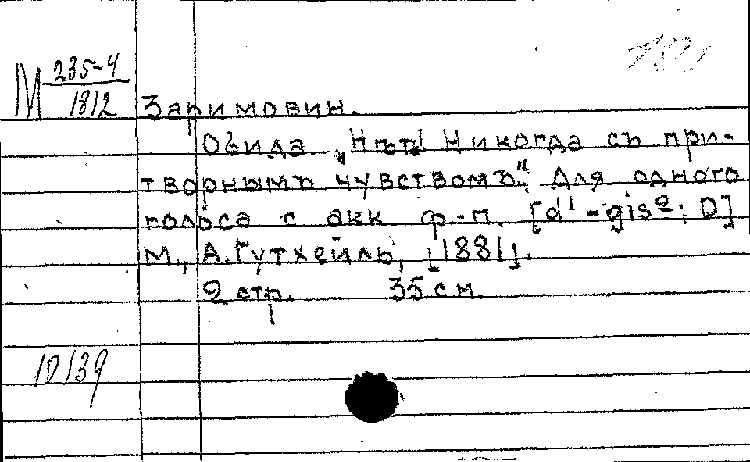 М 235-4
1812
Заримович.
Обида „Нѣтъ! Никогда съ при-
творнымъ чувствомъ". Для одного
голоса с акк ф-п. [d¹-gis²; D]
М., А. Гутхейль, [1881].
2 стр. 35 см.
10139